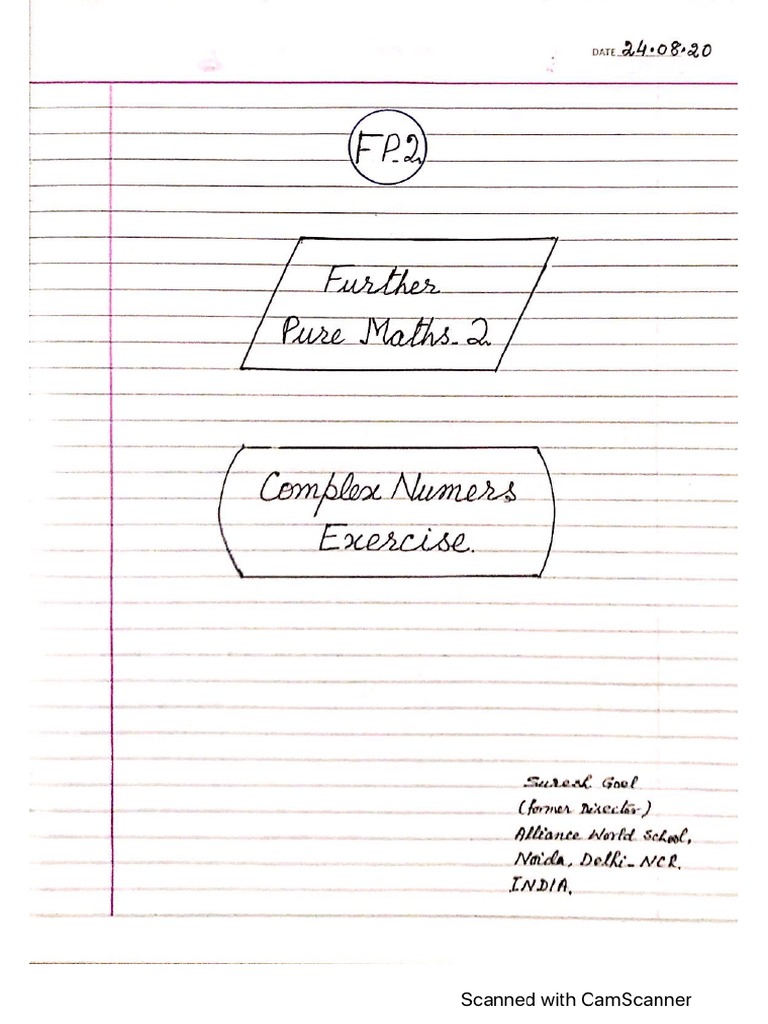 DATE 24.08.20
FP-2
Further
Pure Maths-2
Complex Numers
Exercise.
Suresh Goel
(former Director)
Alliance World School,
Noida, Delhi-NCR.
INDIA.
Scanned with CamScanner